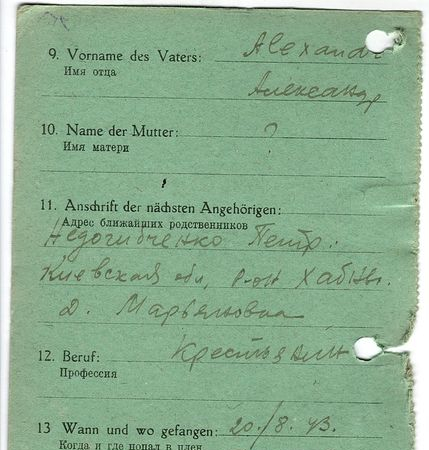 9. Vorname des Vaters: Alexander
Имя отца Александр
10. Name der Mutter: ?
Имя матери
11. Anschrift der nächsten Angehörigen:
Адрес ближайших родственников
Петр.
Киевская обл, р-он
д. Марьяновка
12. Beruf: Крестьянин
Профессия
13 Wann und wo gefangen: 20./8. 43.
Когда и где попал в плен